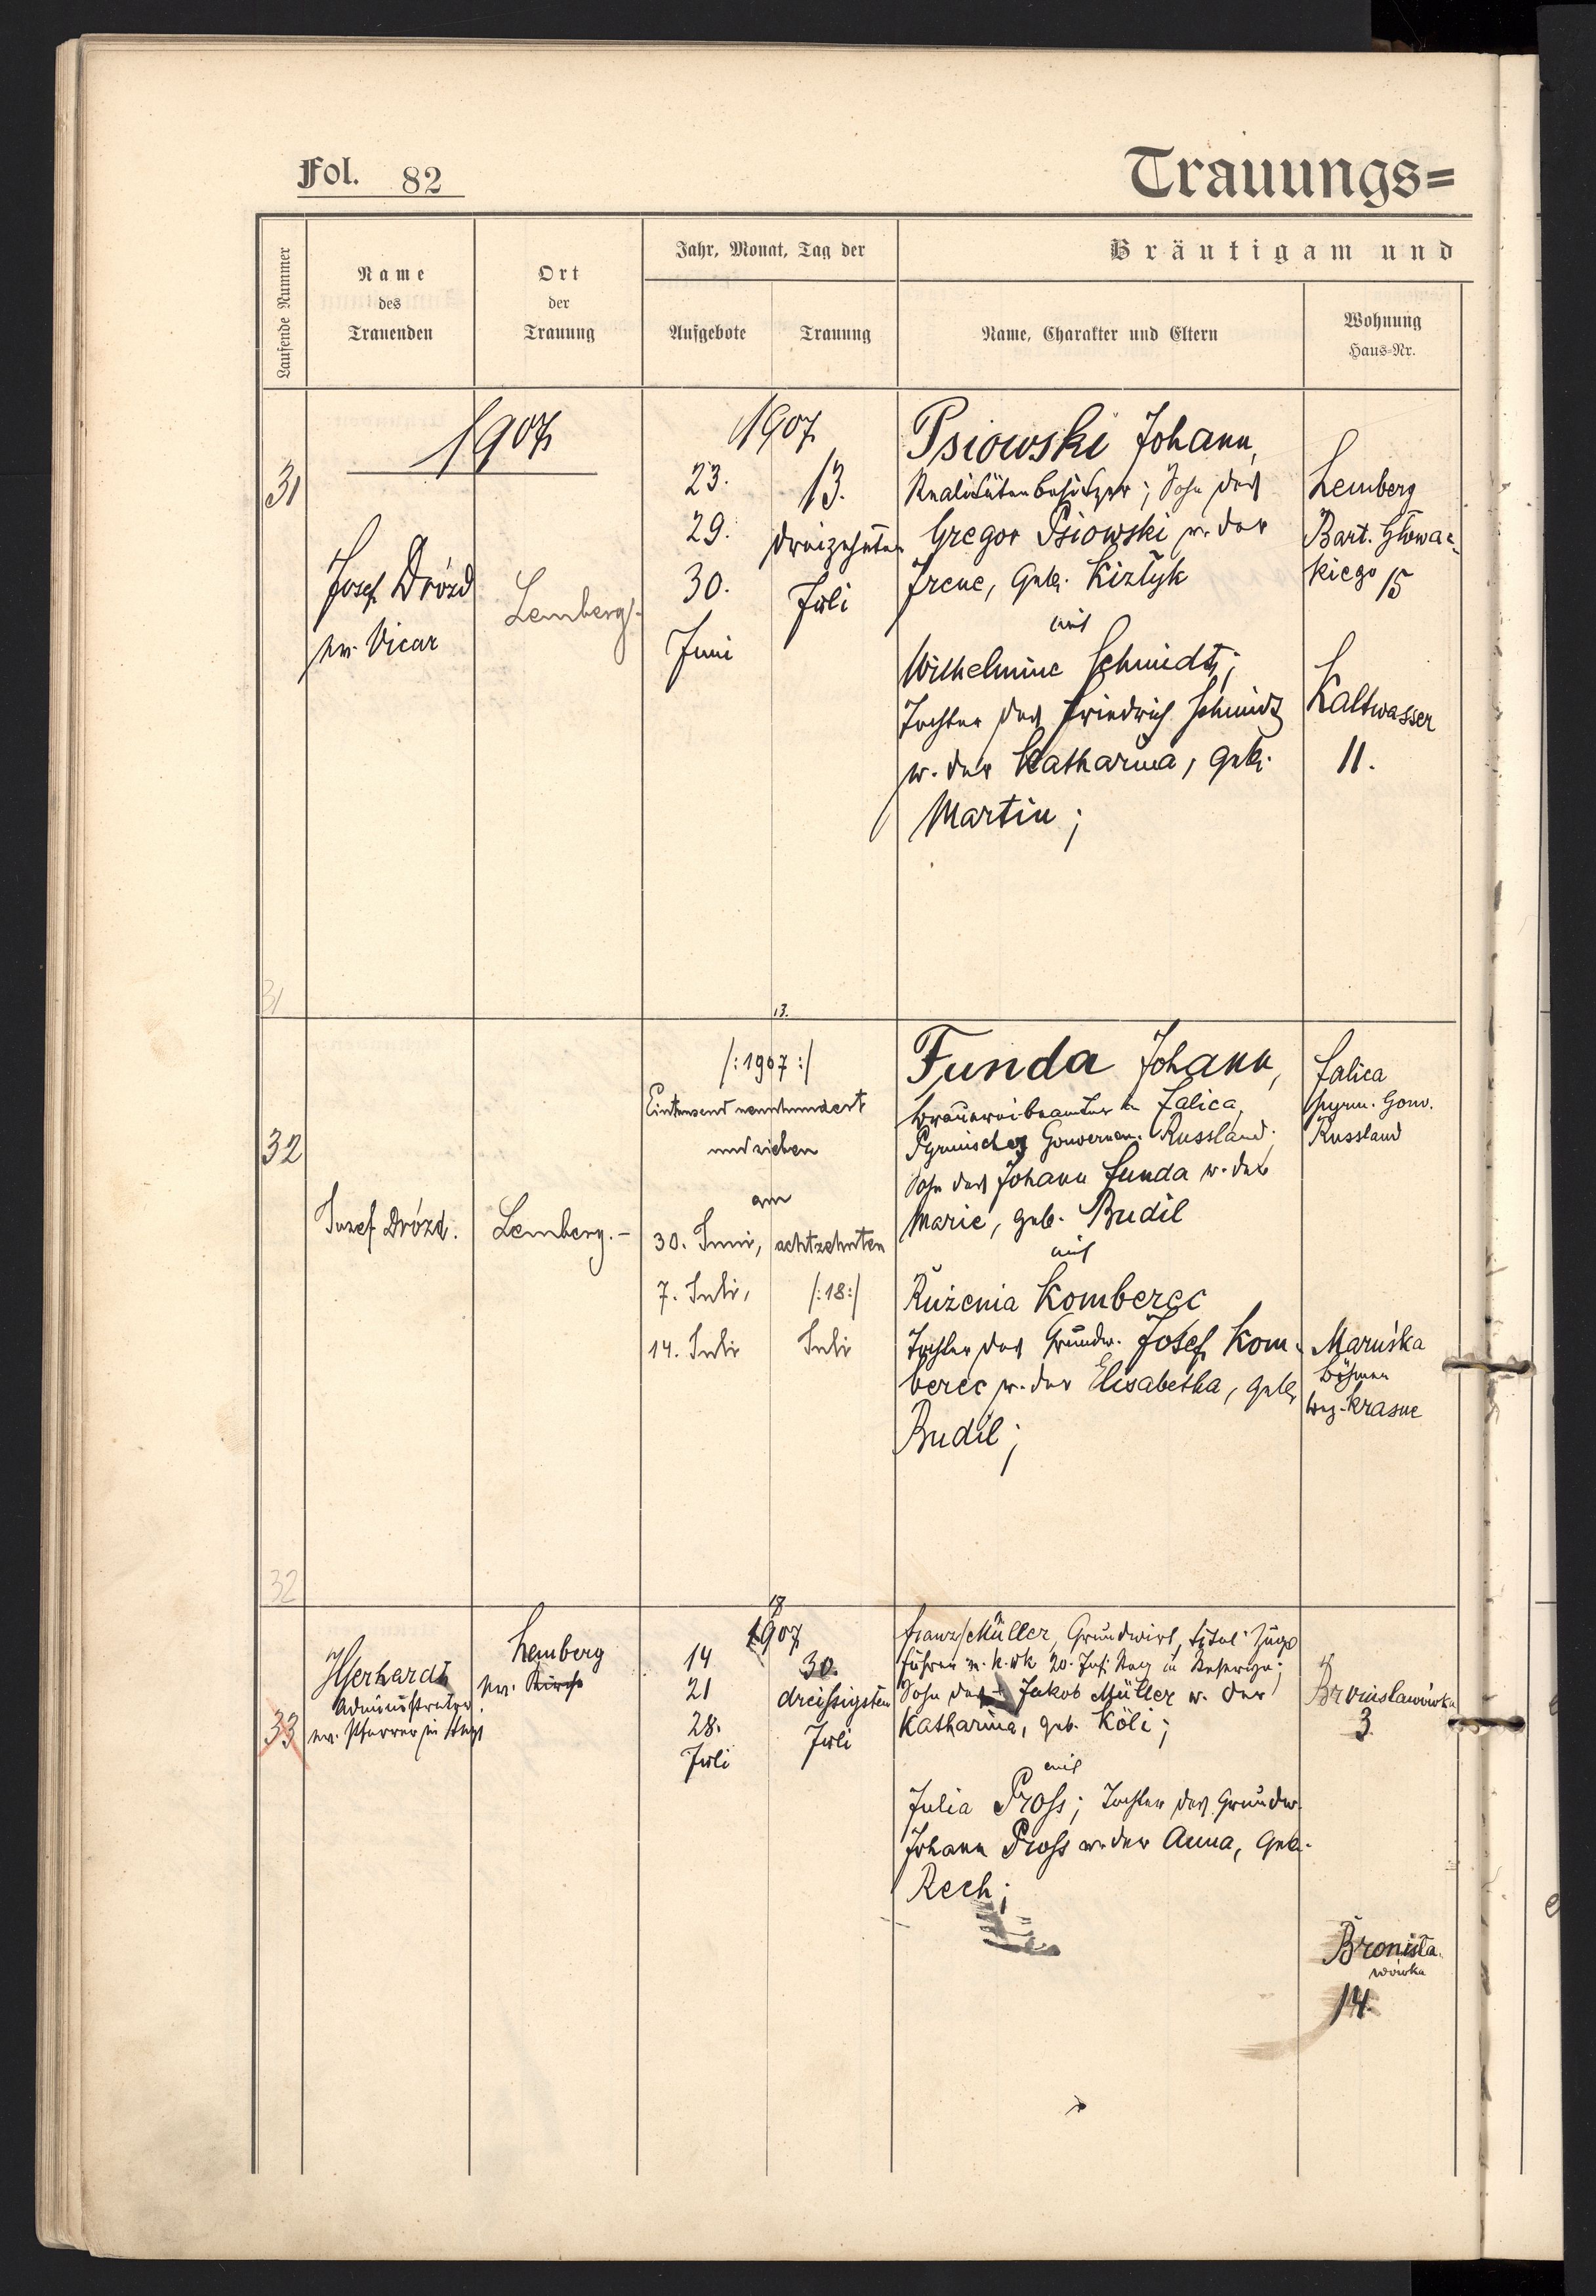 Fol. 82
Trauungs=
Laufende Nummer
Name
des
Trauenden
Ort
der
Trauung
Jahr, Monat, Tag der
Aufgebote
Trauung
Bräutigam und
Name, Charakter und Eltern
Wohnung
Haus-Nr.
31
1907
Josef Drózd
ev. Vicar
Lemberg.
1907
23.
29.
30.
Juni
13.
dreizehnten
Juli
Psiowski Johann,
Realitätenbesitzer; Sohn des
Gregor Psiowski u. der
Irene, geb. Kiztyk
mit
Wilhelmine Schmidt;
Tochter des Friedrich Schmidt
u. der Katharina, geb.
Martin;
Lemberg
Bart. Głowac-
kiego 15
Kaltwasser
11.
31
13.
32
Josef Drózd.
Lemberg.-
/:1907:/
Eintausend neunhundert
und sieben
am
30. Juni,
7. Juli,
14. Juli
achtzehnten
/:18:/
Juli
Funda Johann,
Brauereibeamter in Jalica,
Pyrmisches Gouvernem. Russland;
Sohn des Johann Funda u. der
Marie, geb. Budil
mit
Ruženia Komberec
Tochter des Grundw. Josef Kom-
berec u. der Elisabetha, geb.
Budil;
Jalica
pyrm. Gouv.
Russland
Maruśka
Böhmen
bez. Krasne
32
18
33
Gerhardt
Administrator
ev. Pfarrer in Stryj
Lemberg
ev. Kirche
1907
14
21
28.
Juli
30.
dreißigsten
Juli
Franz Müller, Grundwirt, titul. Zugs
führer im k. u k 20. Inf. Reg in Reserve;
Sohn des Jakob Müller u. der
Katharina, geb. Köli;
mit
Julia Pross; Tochter des Grundw.
Johann Pross u. der Anna, geb.
Rech;
Bronisławówka
3
Bronisła
wówka
14.